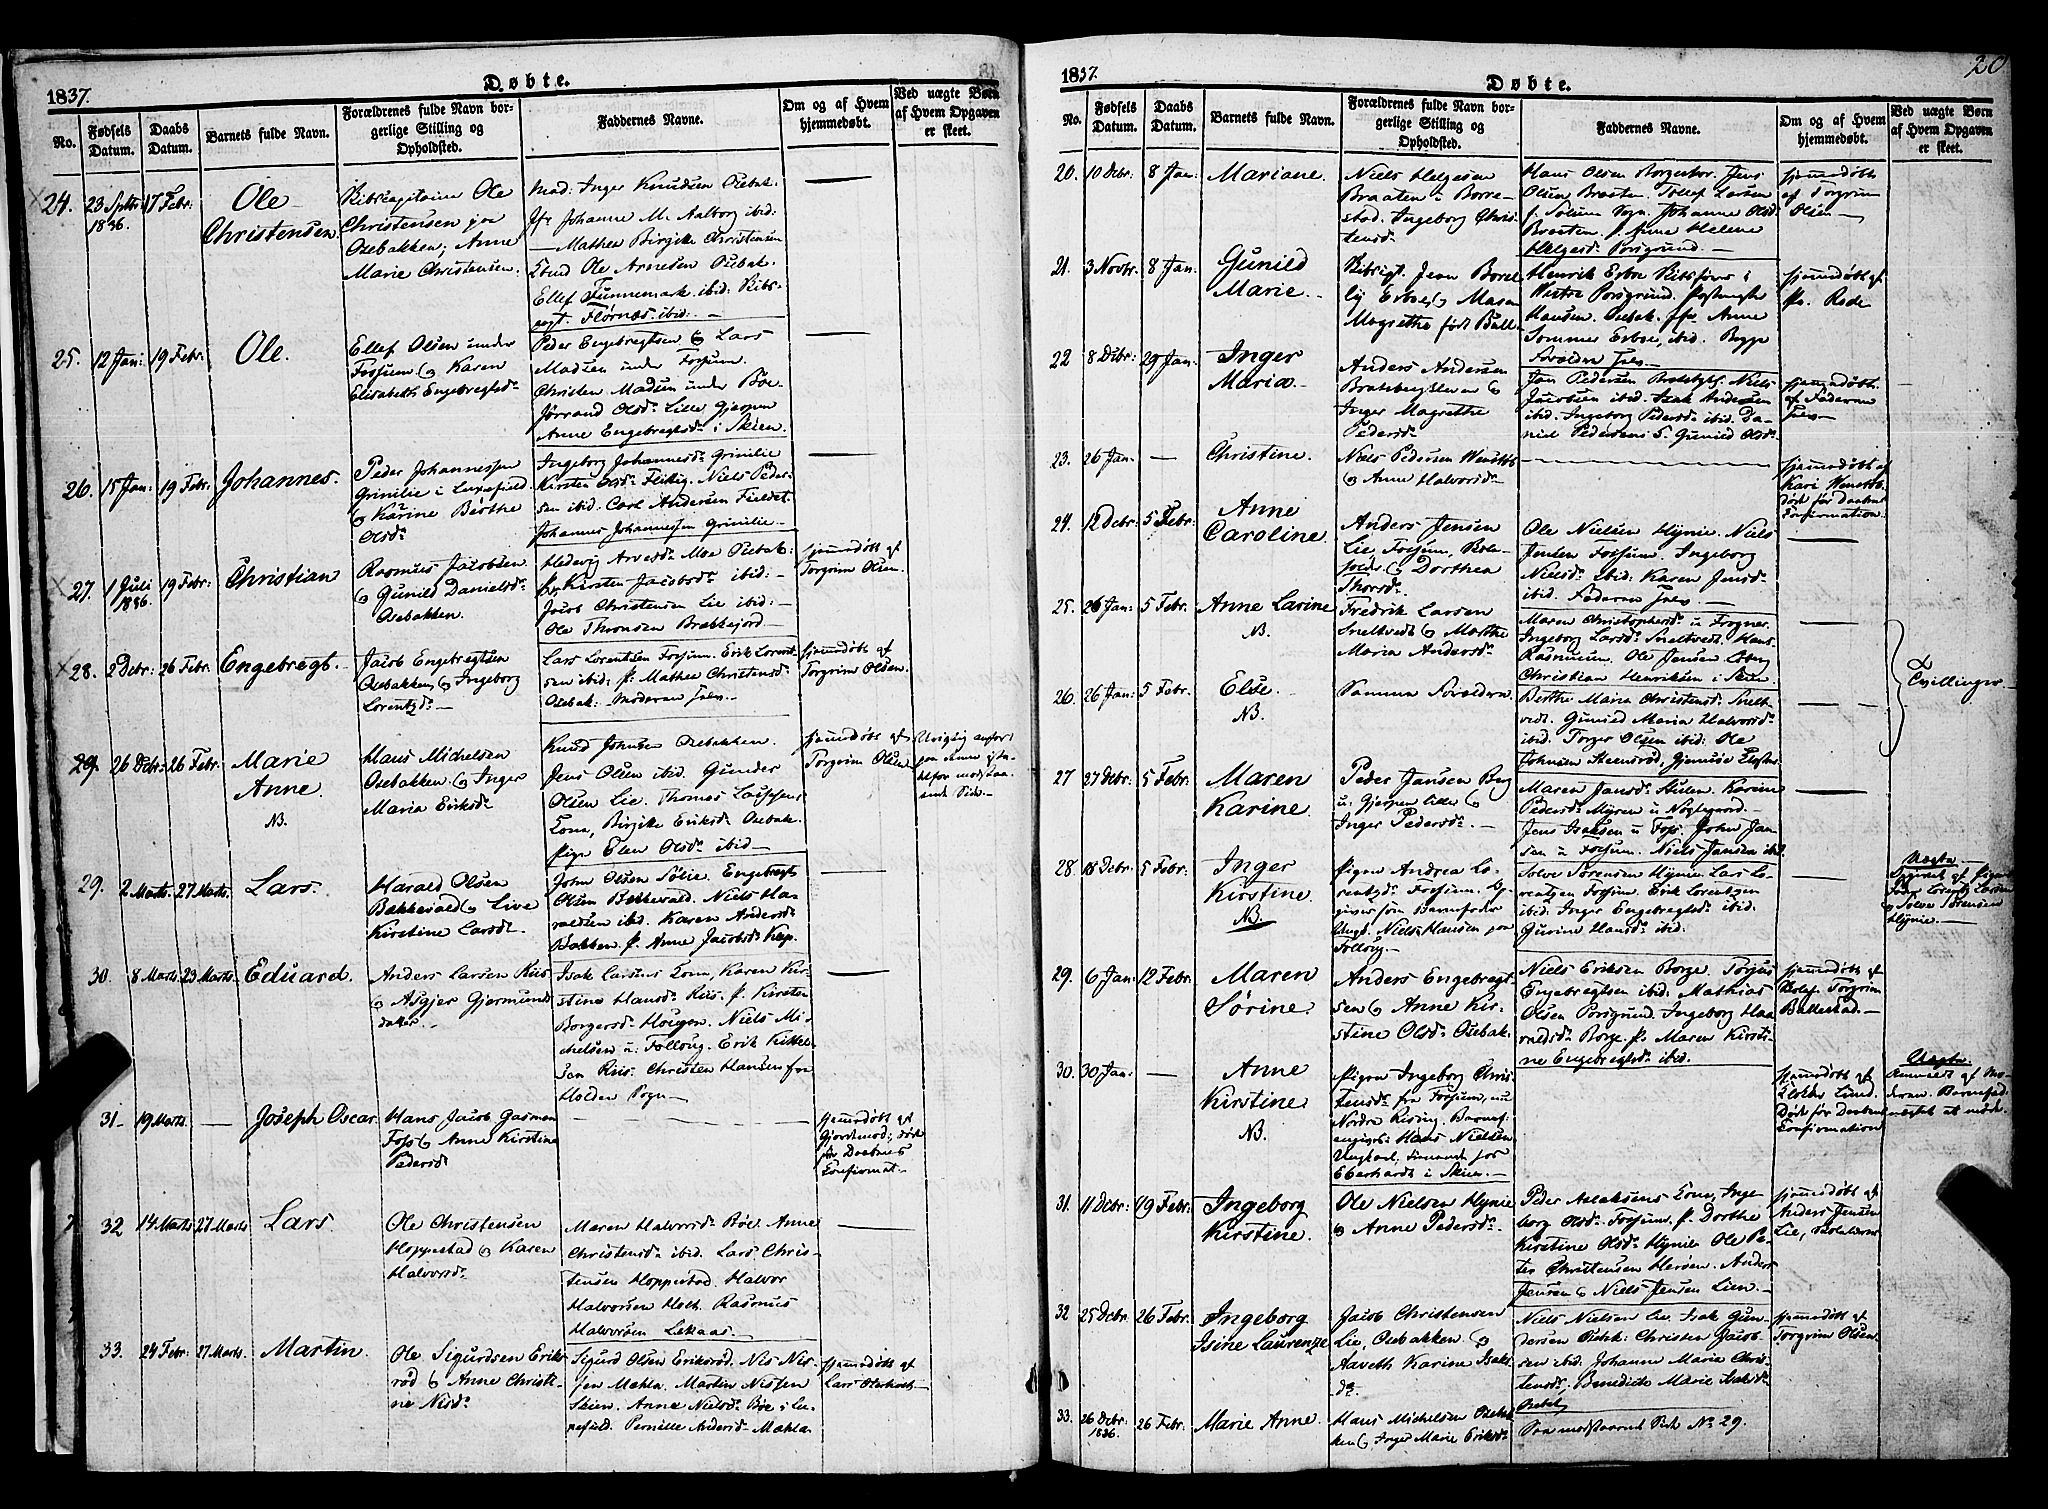 1837.
Døbte.
No.
Fødsels Datum.
Daabs Datum.
Barnets fulde Navn.
Forældrenes fulde Navn borgerlige Stilling og Opholdsted.
Faddernes Navne.
Om og af Hvem hjemmedøbt.
Ved uægte Børn af Hvem Opgaven er skeet.
24.
23 Septbr: 1836.
17 Febr:
Ole
Christensen
Skibscapitaine Ole
Christensen
Osebakken; Anne
Marie Christensen.
Mad: Inger Knudsen Osebak.
Jfr Johanne M. Aalborg ibid:
Mathea Birgitte Christensen
Ole Arnesen Osebak.
Ellef Tunnemark ibid:
Flørnæs ibid:
25.
12 Jan:
19 Febr.
Ole.
Ellef Olsen under
Fossum & Karen
Elisabeth Engebregtsdr
Peder Engebregtsen & Lars
Madsen under Fossum.
Christen Madsen under Bøe
Jørrand Olsdr Lille Gjerpen
Anne Engebregtsdr i Skien.
26.
15 Jan:
19 Febr.
Johannes.
Peder Johannessen
Grinilie i Luxefield
& Karine Birthe
Olsdr
Ingeborg Johannesdr Grinilie
Kirsten Olsdr
Niels Peder-
sen ibid: Carl Andersen Fieldet
Johannes Johannessen Grinilie
27.
1 Juli 1836.
19 Febr:
Christian
Rasmus Jacobsen
& Gunild Danielsdr
Osebakken.
Hedevig Arvesdr Moe Osebak:
P. Kirsten Jacobsdr ibid:
Jacob Christensen Lie ibid:
Ole Thronsen Brækkejord
Hjemmedøbt af
Torgrim Olsen.
28.
2 Decbr:
26 Febr.
Engebregt.
Jacob Engebregtsen
Osebakken & Ingeborg
Lorentzdr
Lars Lorentsen Fossum. Erik Lorent-
sen ibid: P. Mathea Christensdr
Osebak. Moderen selv
Hjemmedøbt af
Torgrim Olsen.
29.
26 Dcbr:
26 Febr.
Marie
Anne
NB.
Hans Michelsen
Osebakken & Inger
Maria Eriksdr
Knud Johnsen Osebakken.
Jens Olsen ibid. Gunder
Olsen Lie. Thomas
Birgitte Eriksdr Osebak.
Pige Elen Olsdr ibid
Hjemmedøbt af
Torgrim Olsen
Urigtig anført
29.
2 Marts.
27 Marts.
Lars.
Harald Olsen
Bakkevald & Live
Kirstine Larsdr
John Olsen Sølie. Engebregt
Olsen Bakkevald. Niels Ha-
raldsen ibid. Karen Andersdr
Bakken. P. Anne Jacobsdr Kap.
30.
8 Marts
23 Marts.
Eduard.
Anders Larsen Riis
& Asgjer Gjermunds
datter.
Isak Larsens Kone, Karen Kir-
stine Hansdr Riis. P. Kirsten
Borgersdr Hougen. Niels Mi-
chelsen u: Følloug. Erik Kittel-
sen Riis. Christen Hansen fra
Holden Sogn
31
19 Marts.
Joseph Oscar.
Hans Jacob Gasman
Foss & Anne Kirstine
Pedersdr
Hjemmedøbt af
død
før Daabens
Confirmat.
32
14 Marts
27 Marts
Lars
Ole Christensen
Hoppestad & Karen
Halvorsdr
Maren Halvorsdr Bøe. Anne
Christensdr ibid. Lars Chris-
tensen Hoppestad. Halvor
Halvorsen Holt. Rasmus
Halvorsen Lekaas.
33.
24 Febr:
27 Marts.
Martin.
Ole Sigurdsen Eriks-
rød & Anne Christi-
ne Nisdr
Sigurd Olsen Eriksrød. Nis Nis-
sen Mæhla. Martin Nissen
Skien. Anne Nielsdr Bøe i Lu-
xefield. Pernille Andersdr Mæhla
Hjemmedøbt af
Lars
1837.
Døbte.
20
No.
Fødsels Datum.
Daabs Datum.
Barnets fulde Navn.
Forældrenes fulde Navn borgerlige Stilling og Opholdsted.
Faddernes Navne.
Om og af Hvem hjemmedøbt.
Ved uægte Børn af Hvem Opgaven er skeet.
20.
10 Decbr:
8 Jan:
Mariane.
Niels Helgesen
Braaten u Borre-
stad. Ingeborg Chris-
tensdr
Hans Olsen Borgestad. Jens
Olsen Braaten. Tollef Larsen
f. Solum Sogn. Johanne Olsdr
Braaten. P. Anne Helene
Helgesdr Porsgrund.
Hjemmedøbt
af Torgrim
Olsen
21.
3 Novbr.
8 Jan.
Gunild
Marie.
Maren
Magrethe født Bull
Henrik
Westre Porsgrund. Postmester
Hansen. Osebak. Jfr Anne
Sommer
ibid. Begge
Foreldre selv
Hjemmedøbt af
Pr. Rode
22
8 Dcbr:
29 Jan:
Inger
Maria.
Anders Andersen
Bratsbergkleven &
Inger Magrethe
Pedersdr
Jan Pedersen
Niels
Jacobsen ibid. Isak Andersen
ibid. Ingeborg Pedersdr ibid. Da-
niel Pedersen. P. Gunild Olsdr
Hjemmedøbt
af Faderen
selv
23.
26 Jan:
Christine.
Niels Pedersen Wenstøb
& Anne Halvorsdr
Hjemmedøbt af
Kari Wenstøb.
Død før Daabens
Confirmation.
24.
12 Decbr:
5 Febr:
Anne
Caroline.
Anders Jensen
Lie, Fossum,
& Dorthea
Thorsdr
Ole Nielsen Hynie. Niels
Jensen Fossum. Ingeborg
Nielsdr ibid: Karen Jensdr
ibid. Faderen selv
25.
26 Jan:
5 Febr.
Anne Larine
NB.
Fredrik Larsen
Sneltvedt & Marthe
Maria Andersdr
Maren Christophersdr u Frogner.
Ingeborg Larsdr Sneltvedt. Hans
Rasmussen. Ole Jensen
Christian Henriksen i Skien
26.
26 Jan:
5 Febr.
Else.
NB.
Samme Forældre.
Tvillinger
Berthe Maria Christensdr Snelt-
vedt. Gunild Maria Halvorsdr
ibid. Torger Olsen ibid: Ole
Johnsen
27
27 Decbr:
5 Febr:
Maren
Karine.
Peder Jansen Berg
u: Gjerpen lille &
Inger Pedersdr
Maren Jansdr Skien. Karine
Pedersdr Myren u Nøglegaard.
Jens Isaksen u Foss. John Jan-
sen u Fossum. Niels Jansen ibid.
28.
18 Decbr:
5 Febr:
Inger
Kirstine.
NB.
Pigen Andrea Lo-
rentzdr Fossum. Op-
giver som Barnefader
Ungk. Niels Hansen paa
Følloug.
Solve Sørensen Hynie. Lars Lo-
rentzen Fossum. Erik Lorentzen
ibid: Inger Engebregtsdr ibid.
Gurine Hansdr ibid.
Uægte
Opgivet af Pigens
Fader Lorentz Larsen
& Solve Sørensen
Hynie.
29.
6 Jan:
12 Febr.
Maren
Sørine.
Anders Engebregt-
sen & Anne Kir-
stine Olsdr Osebak.
Niels Eriksen Borge. Torjus
Engebregtsen ibid: Mathias
Olsen Porsgrund. Ingeborg Haa-
voldsdr Borge. P. Maren Kirsti-
ne Engebregtsdr ibid.
Hjemmedøbt af
Torgrim
Ballestad.
30.
30 Jan:
Anne
Kirstine
NB.
Pigen Ingeborg Chris-
tensdr fra Fossum, nu
Nordre Rising. Barnef.
angives: Hans Nielsen
Ungkarl, tienende hos
Eberhardt i Skien.
Hjemmedøbt af
Død før Daabens
Confirmation
Uægte.
Anmeldt af Mo-
deren. Barnefad.
nægtet at møde.
31.
11 Decbr:
19 Febr.
Ingeborg
Kirstine.
Ole Nielsen Hynie
& Anne Pedersdr
Peder Aslaksens Kone, Inge-
borg Olsdr Fossum. P. Dorthe
Kirstine Olsdr Hynie Ole Pe-
ter Christensen Hersen. Anders
Jensen & Niels Jensen Lien.
Hjemmedøbt af
Anders Jensen
Lie, Skolelærer
32
25 Decbr:
26 Febr.
Ingeborg
Isine Laurenze
Jacob Christensen
Lie, Osebakken &
Aaveth Karine Isaks
dr.
Niels Nielsen Lie. Isak Gun-
dersen Osebk: Christen Jacob-
sen ibid. Johanne Marie Chris-
tensdr, Benedicte Marie Isaksdr
Osebk
Hjemmedøbt af
Torgrim Olsen
33.
26 Decbr: 1836.
26 Febr.
Marie Anne.
Hans Michelsen Osebak-
ken & Inger Marie Eriksdr
Paa modstaaende Side No 29.